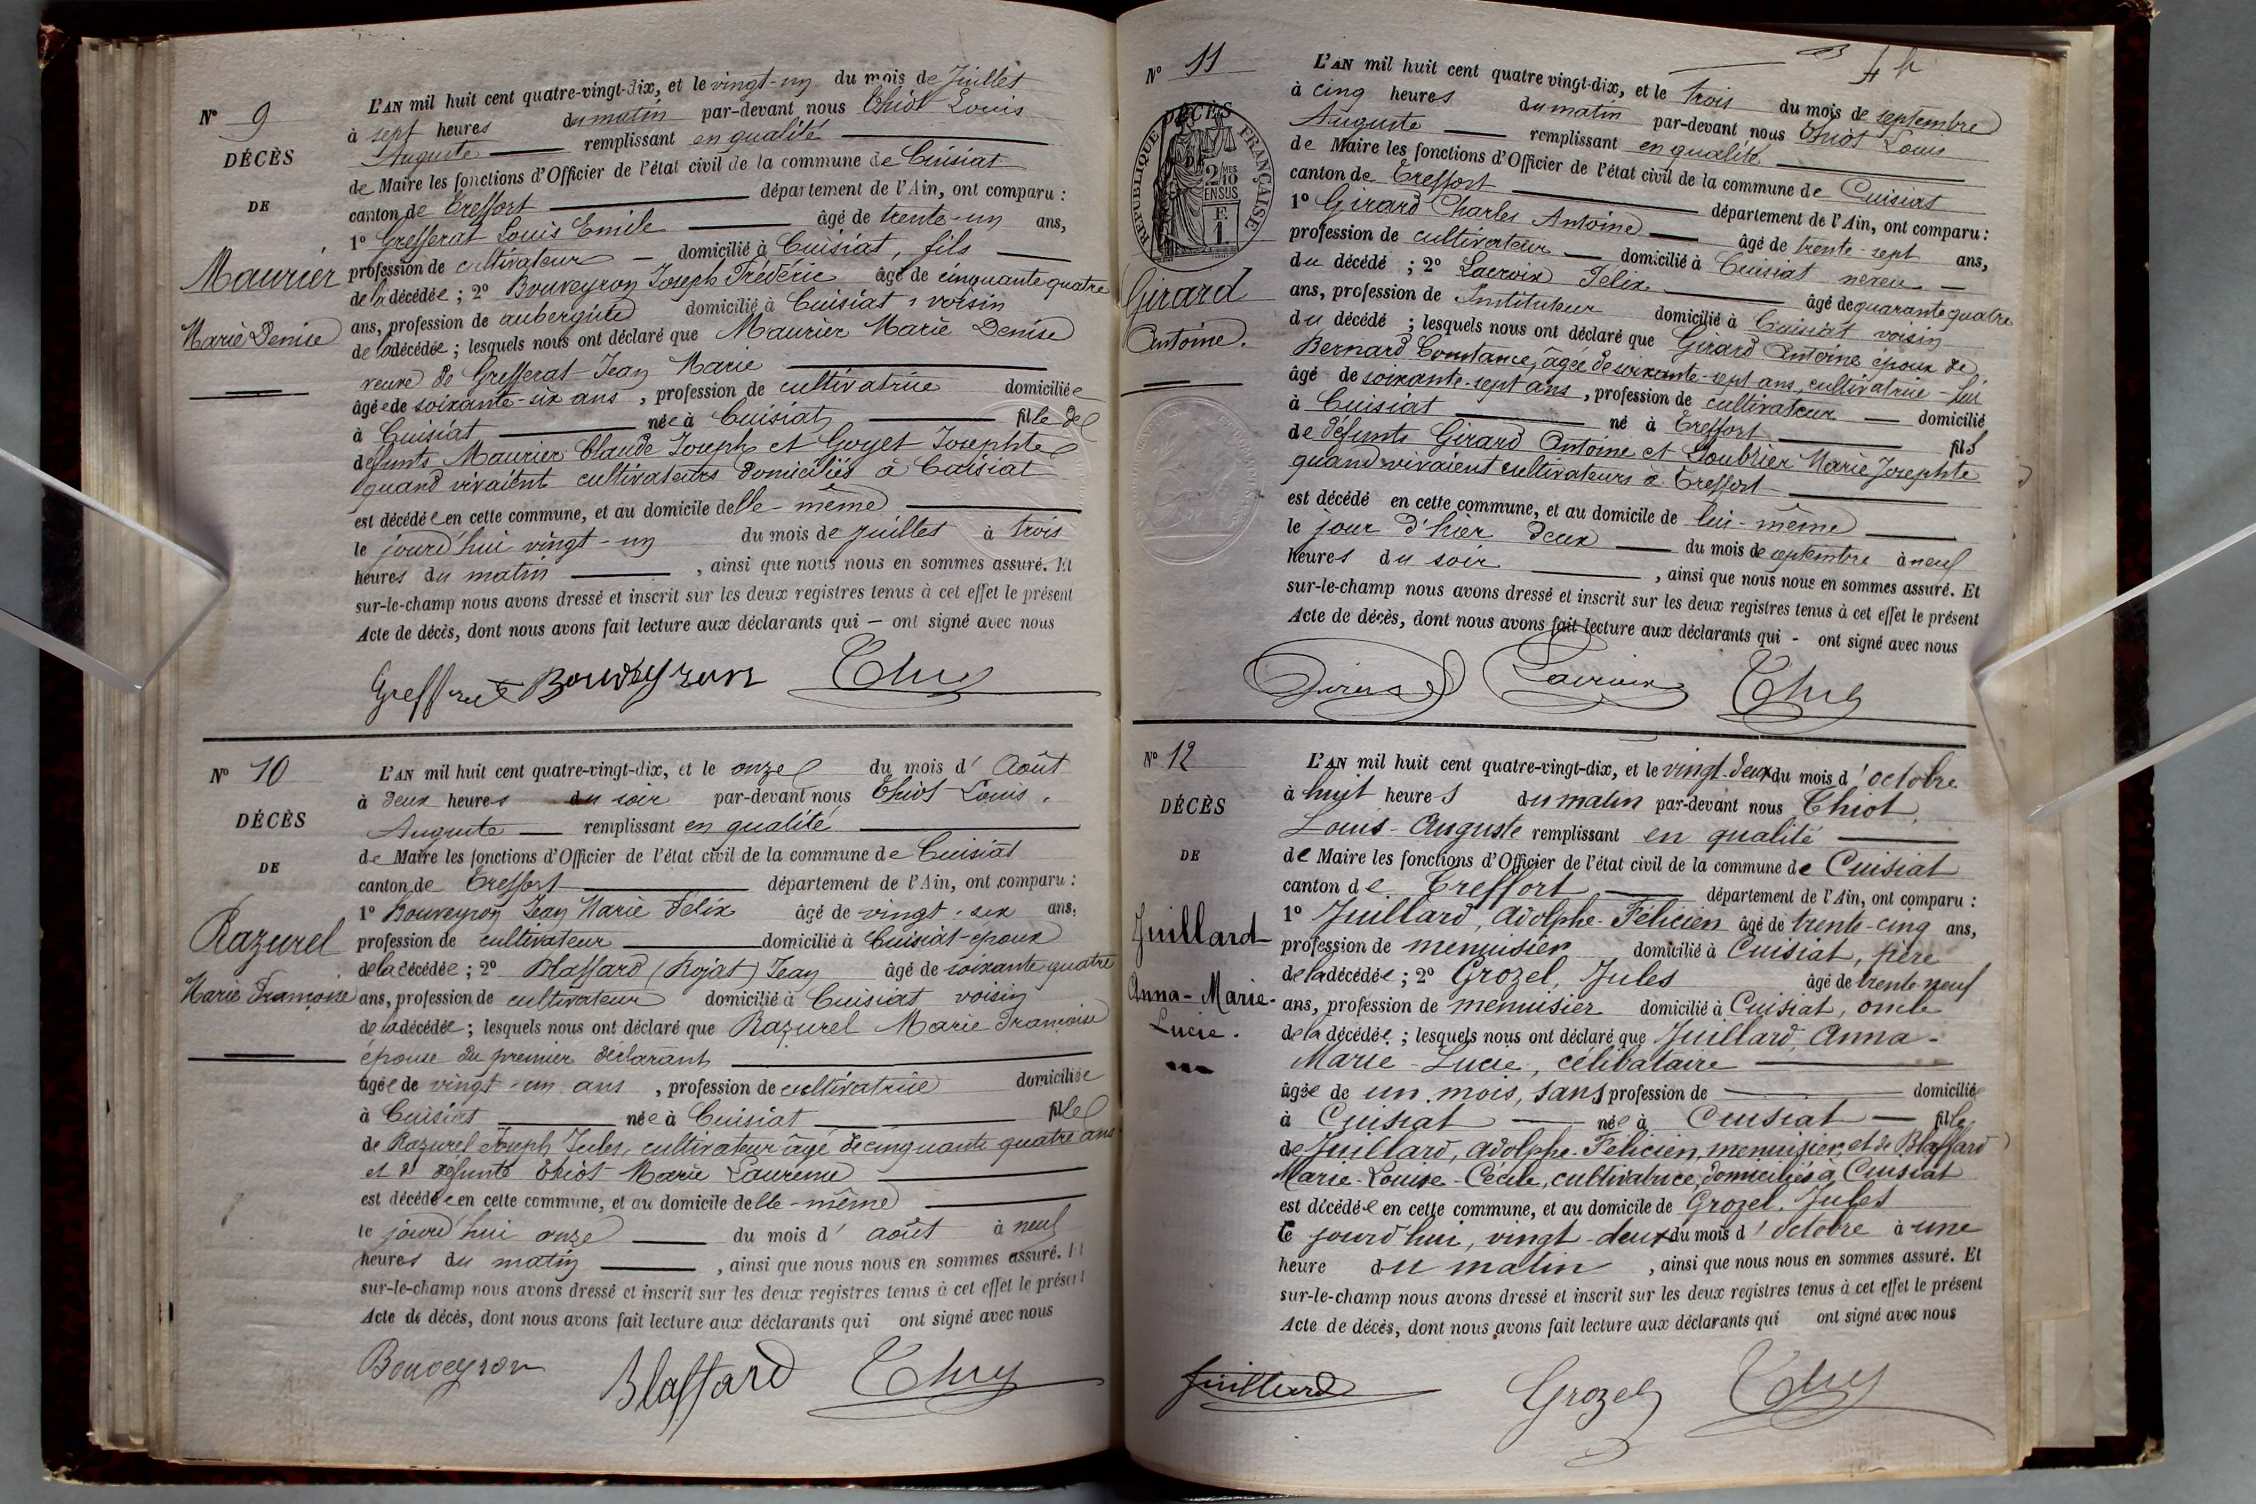 N° 9
DÉCÈS
DE
Maurier
Marie Denise
L'AN mil huit cent quatre-vingt-dix, et le vingt-un du mois de Juillet
à sept heures du matin par-devant nous Chiot Louis
Auguste remplissant en qualité
de Maire les fonctions d'Officier de l'état civil de la commune de Cuisiat
canton de Treffort département de l'Ain, ont comparu :
1° Grefferat Louis Emile âgé de trente-un ans,
profession de cultivateur domicilié à Cuisiat, fils
de la décédée ; 2° Bouveyron Joseph Frédéric âgé de cinquante quatre
ans, profession de aubergiste domicilié à Cuisiat, voisin
de la décédée ; lesquels nous ont déclaré que Maurier Marie Denise
veuve de Grefferat Jean Marie
âgée de soixante-six ans, profession de cultivatrice domiciliée
à Cuisiat née à Cuisiat fille de
défunts Maurier Claude Joseph et Goyet Josephte
quand vivaient cultivateurs domiciliés à Cuisiat
est décédée en cette commune, et au domicile delle-même
le jourd'hui vingt-un du mois de juillet à trois
heures du matin , ainsi que nous nous en sommes assuré. Et
sur-le-champ nous avons dressé et inscrit sur les deux registres tenus à cet effet le présent
Acte de décès, dont nous avons fait lecture aux déclarants qui — ont signé avec nous
Grefferat Bouveyron
N° 10
DÉCÈS
DE
Razurel
Marie Françoise
L'AN mil huit cent quatre-vingt-dix, et le onze du mois d'Août
à deux heures du soir par-devant nous Chiot Louis
Auguste remplissant en qualité
de Maire les fonctions d'Officier de l'état civil de la commune de Cuisiat
canton de Treffort département de l'Ain, ont comparu :
1° Bouveyron Jean Marie Félix âgé de vingt-six ans,
profession de cultivateur domicilié à Cuisiat époux
de la décédée ; 2° Blaffard (Rojat) Jean âgé de soixante quatre
ans, profession de cultivateur domicilié à Cuisiat voisin
de la décédée ; lesquels nous ont déclaré que Razurel Marie Françoise
épouse du premier déclarant
âgée de vingt-un ans, profession de cultivatrice domiciliée
à Cuisiat née à Cuisiat fille
de Razurel Joseph Jules, cultivateur âgé de cinquante quatre ans
et de défunte Chiot Marie Laurence
est décédée en cette commune, et au domicile delle-même
le jourd'hui onze du mois d'août à neuf
heures du matin , ainsi que nous nous en sommes assuré. Et
sur-le-champ nous avons dressé et inscrit sur les deux registres tenus à cet effet le présent
Acte de décès, dont nous avons fait lecture aux déclarants qui ont signé avec nous
Bouveyron Blaffard
N° 11
DÉCÈS
RÉPUBLIQUE FRANÇAISE
2/10 EN SUS
F. 1.
Girard
Antoine.
L'AN mil huit cent quatre vingt-dix, et le trois du mois de septembre
à cinq heures du matin par-devant nous Chiot Louis
Auguste remplissant en qualité
de Maire les fonctions d'Officier de l'état civil de la commune de Cuisiat
canton de Treffort département de l'Ain, ont comparu :
1° Girard Charles Antoine âgé de trente-sept ans,
profession de cultivateur domicilié à Cuisiat neveu
du décédé ; 2° Lacroix Félix âgé de quarante quatre
ans, profession de Instituteur domicilié à Cuisiat voisin
du décédé ; lesquels nous ont déclaré que Girard Antoine époux de
Bernard Constance, âgée de soixante-sept ans, cultivatrice - lui
âgé de soixante-sept ans, profession de cultivateur domicilié
à Cuisiat né à Treffort fils
de défunts Girard Antoine et Loubrier Marie Josephte
quand vivaient cultivateurs à Treffort
est décédé en cette commune, et au domicile de lui-même
le jour d'hier deux du mois de septembre à neuf
heures du soir , ainsi que nous nous en sommes assuré. Et
sur-le-champ nous avons dressé et inscrit sur les deux registres tenus à cet effet le présent
Acte de décès, dont nous avons fait lecture aux déclarants qui - ont signé avec nous
Girard Lacroix
N° 12
DÉCÈS
DE
Juillard
Anna-Marie-
Lucie.
L'AN mil huit cent quatre-vingt-dix, et le vingt-deux du mois d'octobre
à huit heures du matin par-devant nous Chiot,
Louis-Auguste remplissant en qualité
de Maire les fonctions d'Officier de l'état civil de la commune de Cuisiat
canton de Treffort département de l'Ain, ont comparu :
1° Juillard, Adolphe-Félicien âgé de trente-cinq ans,
profession de menuisier domicilié à Cuisiat, père
de la décédée ; 2° Grozel, Jules âgé de trente neuf
ans, profession de menuisier domicilié à Cuisiat, oncle
de la décédée ; lesquels nous ont déclaré que Juillard, Anna-
Marie-Lucie, célibataire
âgée de un mois, sans profession de domiciliée
à Cuisiat née à Cuisiat fille
de Juillard, Adolphe-Félicien, menuisier, et de Blaffard
Marie-Louise-Cécile, cultivatrice, domiciliés à Cuisiat
est décédée en cette commune, et au domicile de Grozel, Jules
le jourd'hui, vingt-deux du mois d'octobre à une
heure du matin , ainsi que nous nous en sommes assuré. Et
sur-le-champ nous avons dressé et inscrit sur les deux registres tenus à cet effet le présent
Acte de décès, dont nous avons fait lecture aux déclarants qui ont signé avec nous
Juillard Grozel